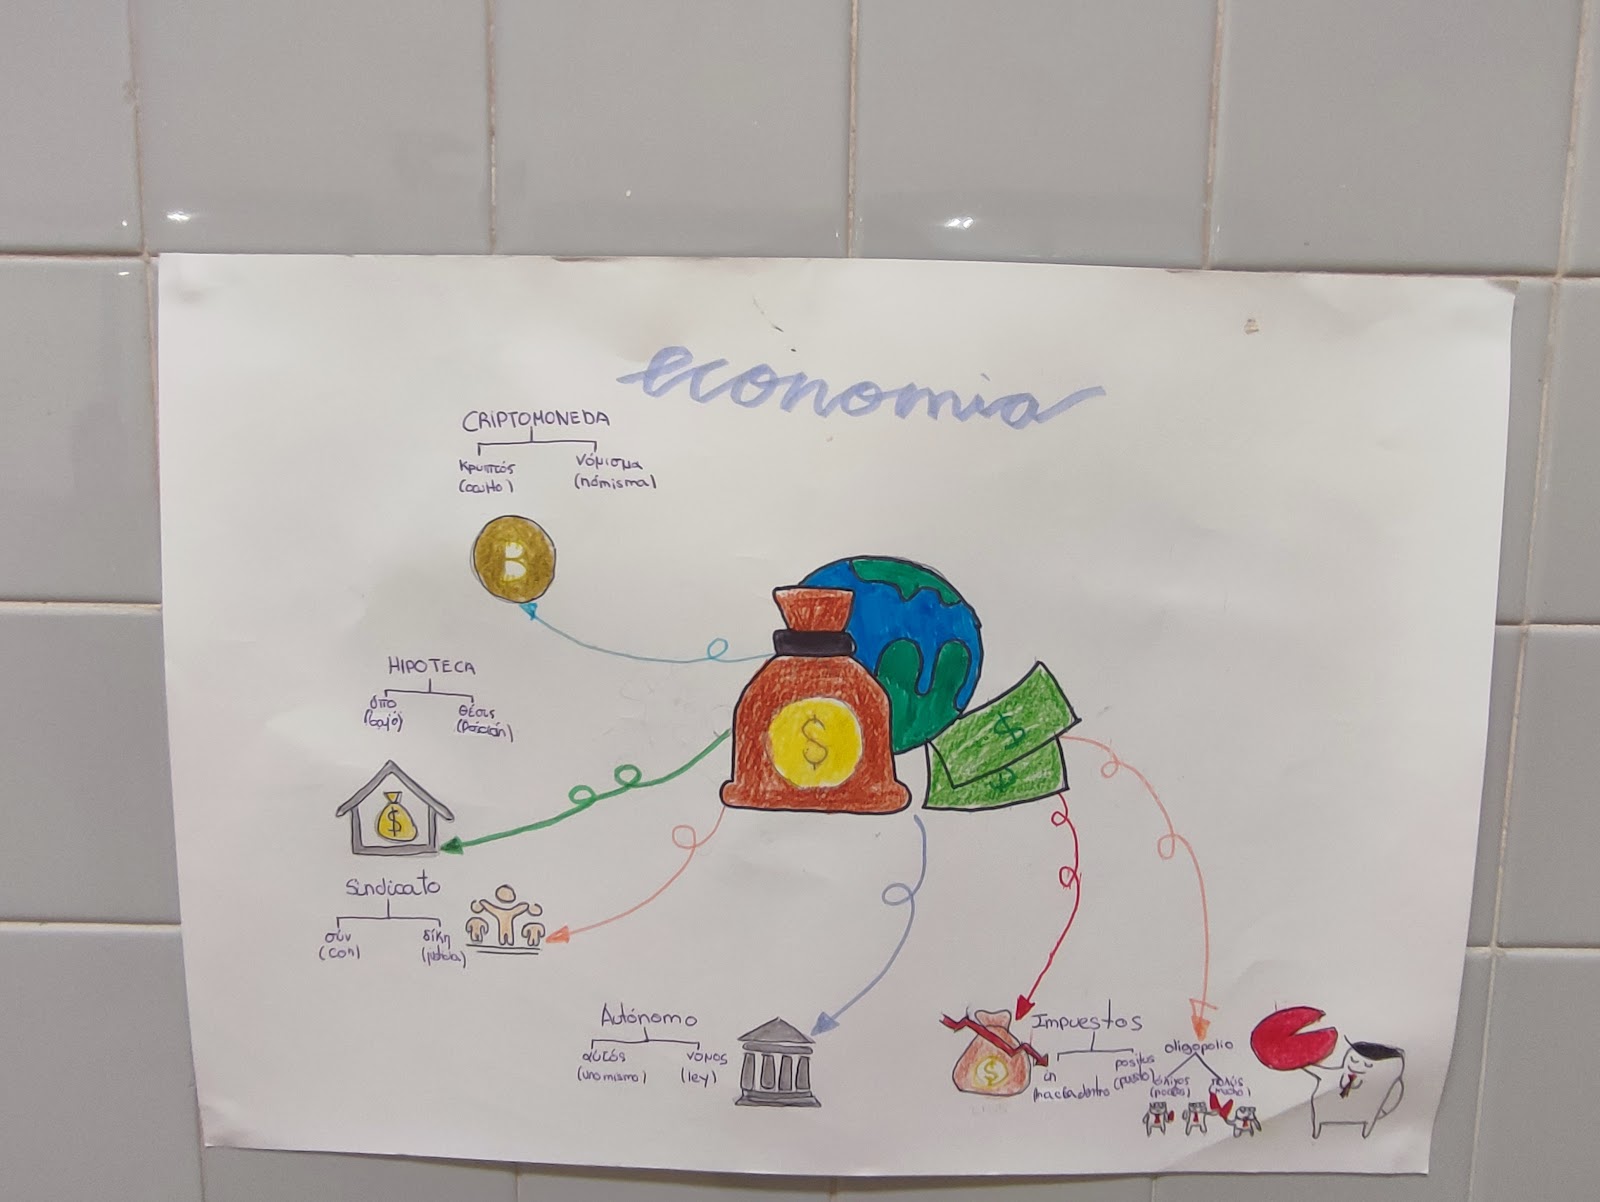 economia
CRIPTOMONEDA
κρυπτός νόμισμα
(oculto) (nómisma)
B
HIPOTECA
ὑπο θέσις
(bajo) (Posición)
$
$
$
$
Sindicato
σύν δίκη
(con) (justicia)
Autónomo
αὐτός νόμος
(uno mismo) (ley)
Impuestos
in positus
hacia dentro (puesto)
$
oligopolio
ὀλίγος πολύς
(pocos) (mucho)